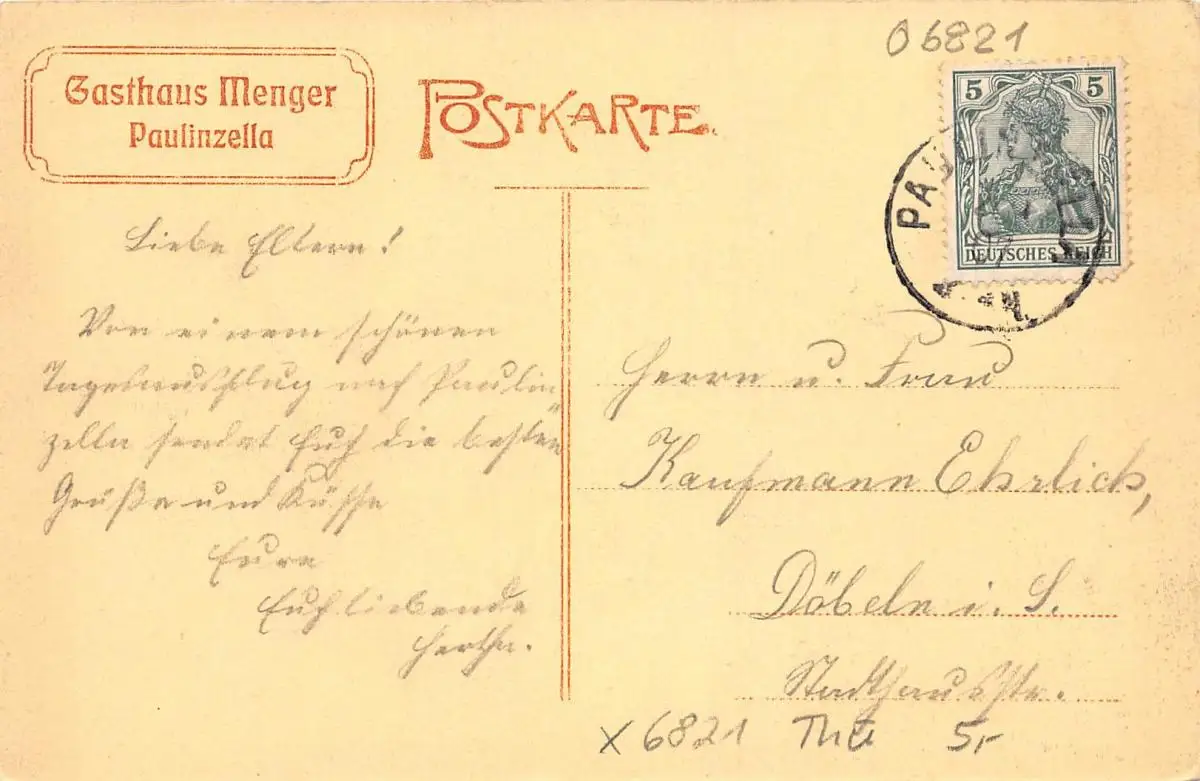 O6821
Gasthaus Menger
Paulinzella
POSTKARTE.
5 5
DEUTSCHES REICH
Liebe Eltern!
Von einem schönen
Tagesausflug nach Paulin
zella sendet Euch die besten
Grüße und Küsse
Eure
Euch liebende
Hertha.
Herrn u. Frau
Kaufmann Ehrlich,
Döbeln i. S.
Stadthausstr.
x 6821 Thü 5,-